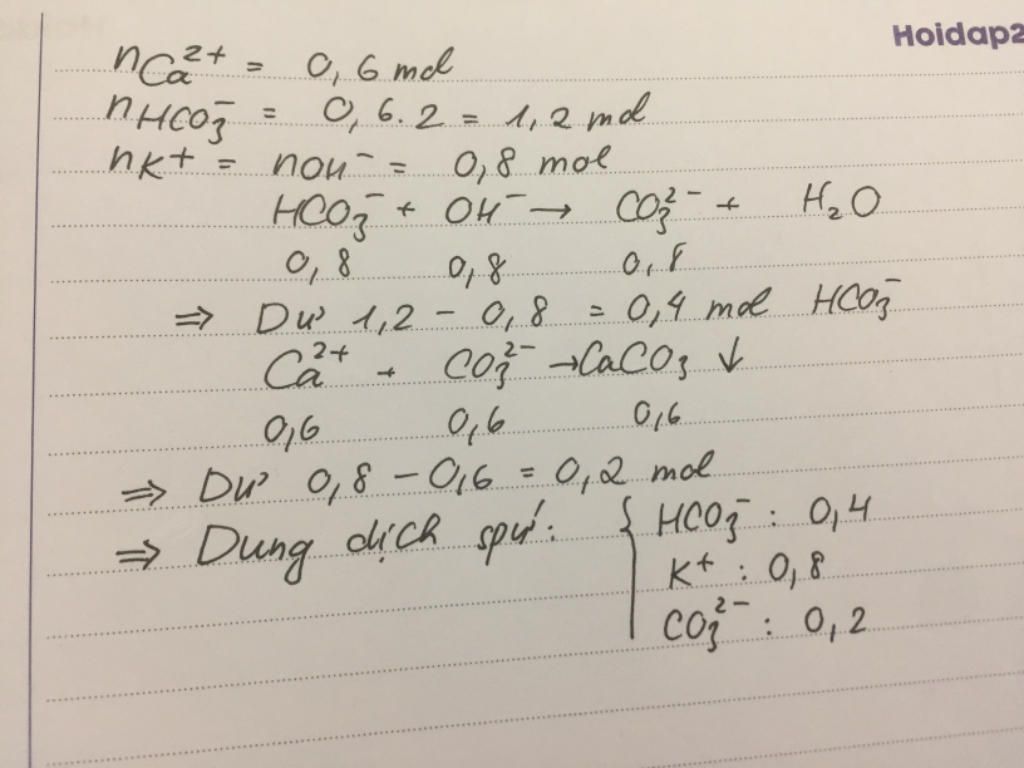 Hoidap2
nCa²⁺ = 0,6 mol
nHCO₃⁻ = 0,6.2 = 1,2 mol
nK⁺ = nOH⁻ = 0,8 mol
HCO₃⁻ + OH⁻ → CO₃²⁻ + H₂O
0,8 0,8 0,8
⇒ Dư 1,2 - 0,8 = 0,4 mol HCO₃⁻
Ca²⁺ + CO₃²⁻ → CaCO₃ ↓
0,6 0,6 0,6
⇒ Dư 0,8 - 0,6 = 0,2 mol
⇒ Dung dịch spứ: { HCO₃⁻ : 0,4
K⁺ : 0,8
CO₃²⁻ : 0,2